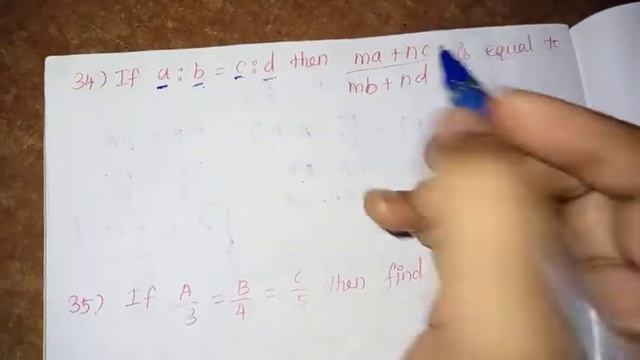 34) If a : b = c : d then ma + nc / mb + nd is equal to
35) If A/3 = B/4 = C/5 then find